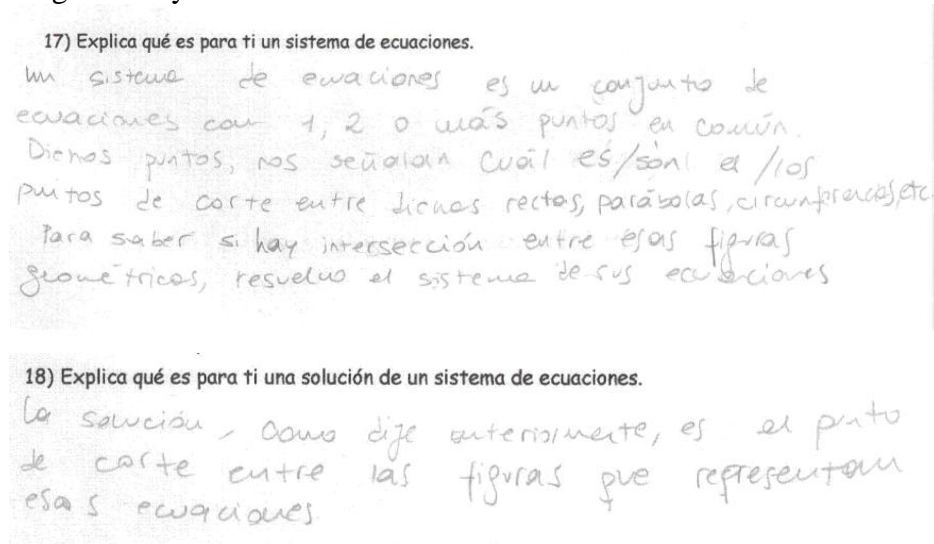 17) Explica qué es para ti un sistema de ecuaciones.
un sistema de ecuaciones es un conjunto de
ecuaciones con 1, 2 o más puntos en común.
Dichos puntos, nos señalan cuál es/son el/los
puntos de corte entre dichas rectas, parábolas, circunferencias, etc.
Para saber si hay intersección entre esas figuras
geométricas, resuelvo el sistema de sus ecuaciones
18) Explica qué es para ti una solución de un sistema de ecuaciones.
La solución, como dije anteriormente, es el punto
de corte entre las figuras que representan
esas ecuaciones.